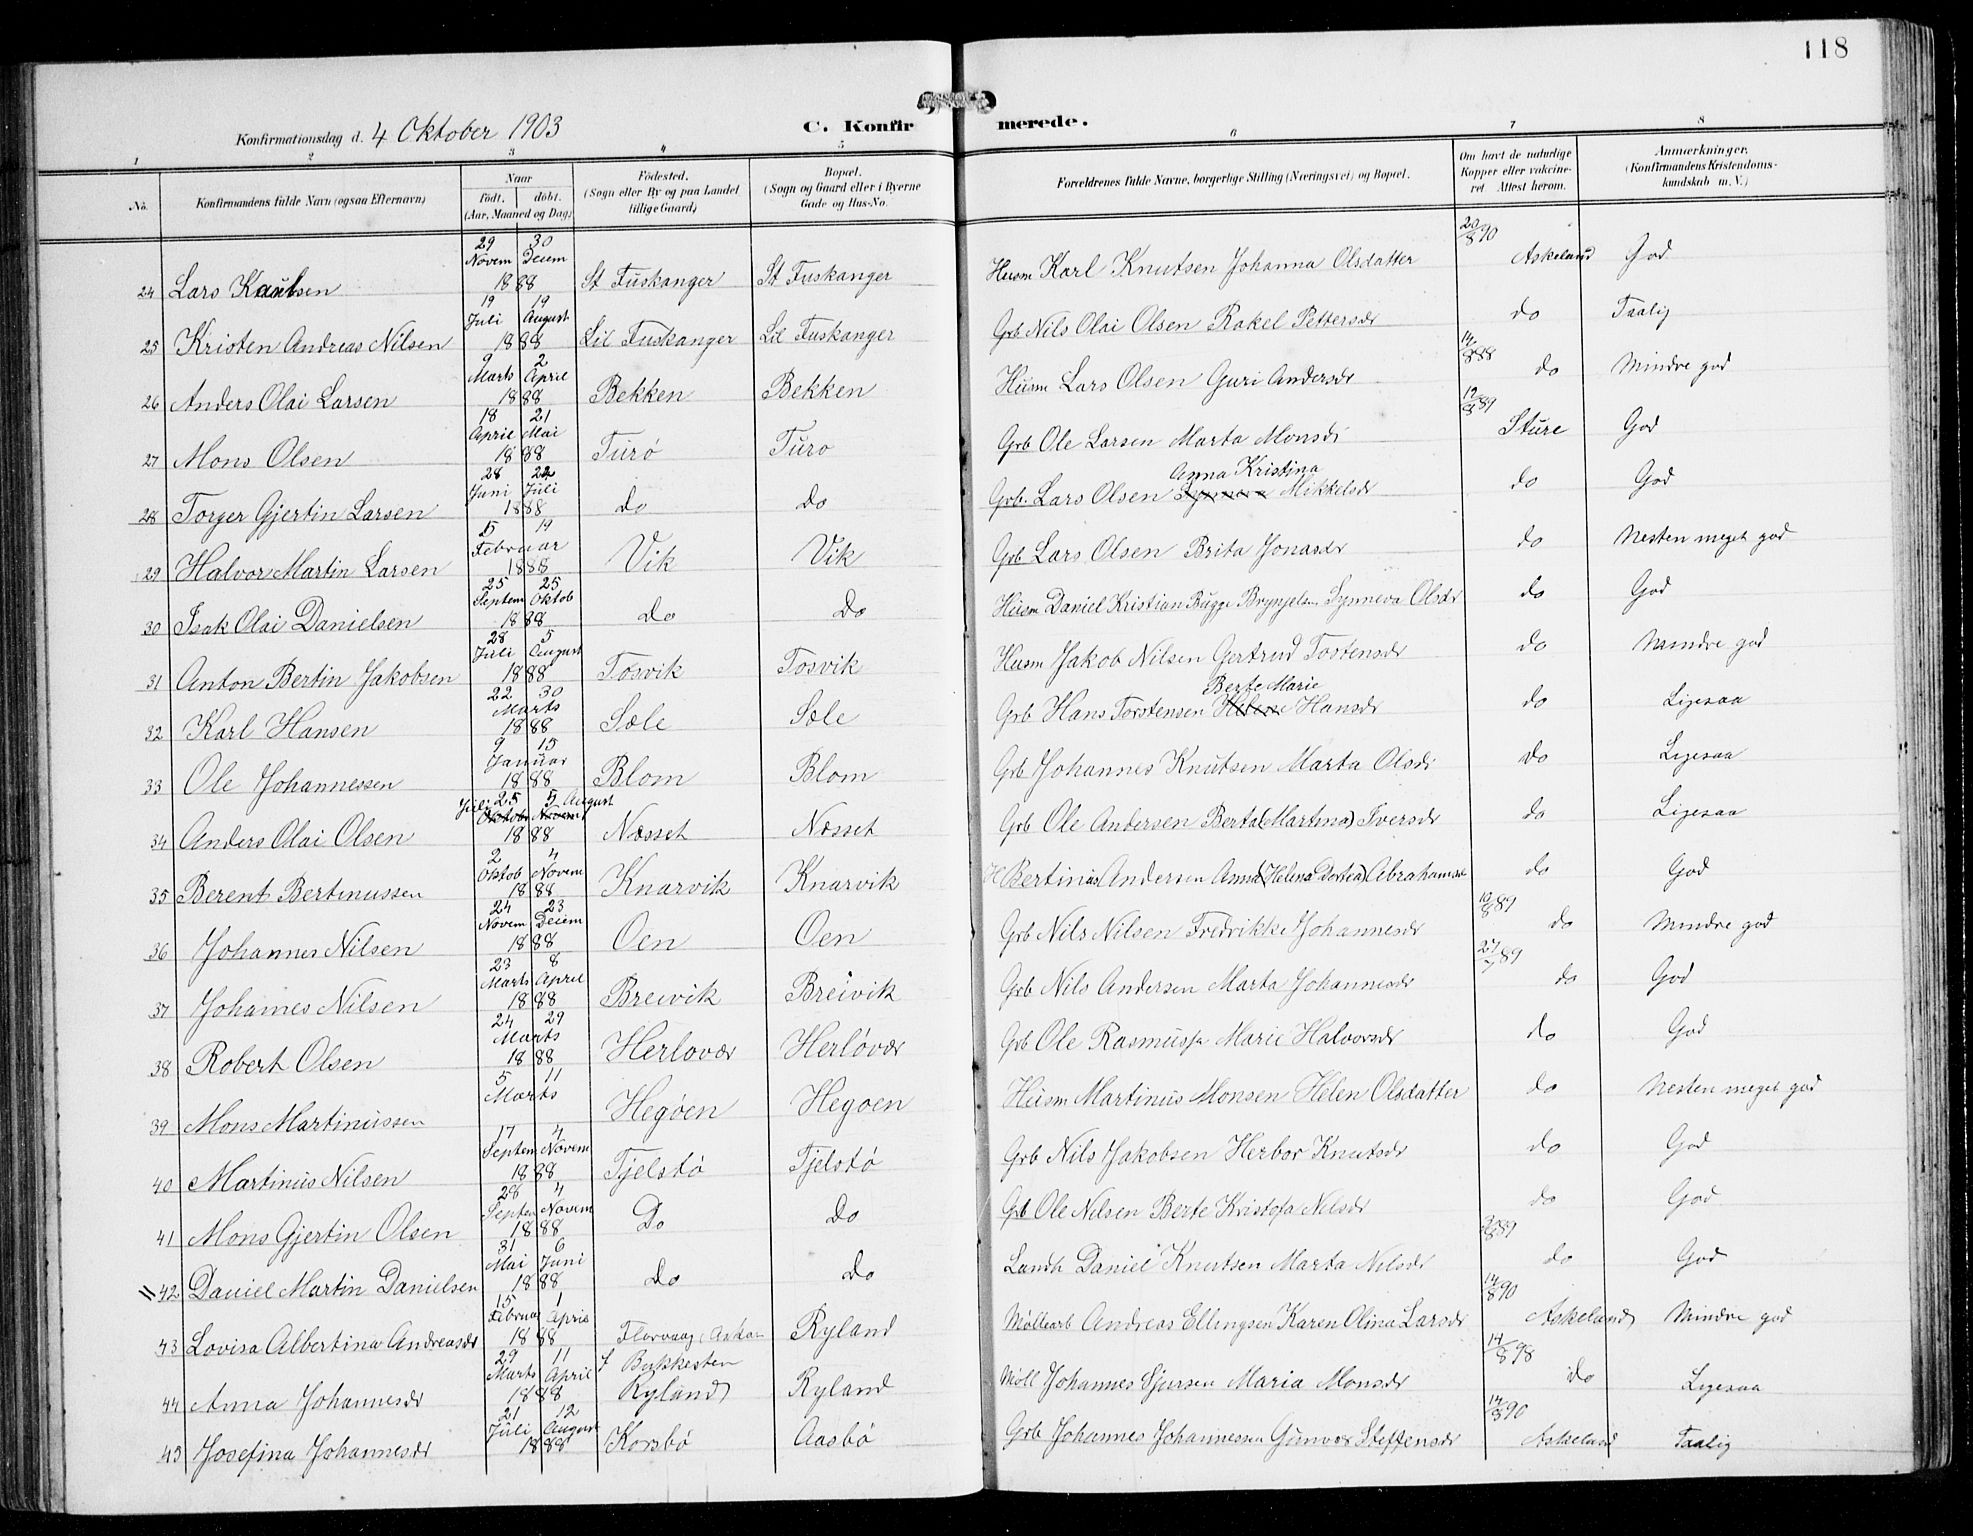 118
Konfirmationsdag d. 4 Oktober 1903
C. Konfirmerede.
1 2 3 4 5 6 7 8
No. Konfirmandens fulde Navn (ogsaa Efternavn) Naar født. døbt. (Aar, Maaned og Dag) Fødested. (Sogn eller By og paa Landet tillige Gaard) Bopæl. (Sogn og Gaard eller i Byerne Gade og Hus-No. Forældrenes fulde Navne, borgerlige Stilling (Næringsvei) og Bopæl. Om havt de naturlige Kopper eller vakcineret Attest herom. Anmærkninger. (Konfirmandens Kristendomskundskab m. V.)
24 Lars Karlsen 29 Novem 30 Decem 1888 St Fuskanger St Fuskanger Husm Karl Knutsen Johanna Olsdatter 20/8 90 Askeland God
25 Kristen Andreas Nilsen 19 Juli 19 August 1888 Lil Fuskanger Lil Fuskanger Grb Nils Olai Olsen Rakel Pettersdr do Taalig
26 Anders Olai Larsen 9 Marts 2 April 1888 Bekken Bekken Husm Lars Olsen Guri Andersdr 14/8 88 do Mindre god
27 Mons Olsen 18 April 21 Mai 1888 Turø Turo Grb Ole Larsen Marta Monsdr 12/8 89 Sture God
28 Torger Gjertin Larsen 28 Juni 22 Juli 1888 do do Grb. Lars Olsen Synneva Anna Kristina Mikkelsdr do God
29 Halvor Martin Larsen 5 19 Februar 1888 Vik Vik Grb Lars Olsen Brita Jonasdr do Nesten meget god
30 Isak Olai Danielsen 25 Septem 25 Oktob 1888 Do Do Husm Daniel Kristian Bugge Brynjelsen Synneva Olsdr do God
31 Anton Bertin Jakobsen 28 Juli 5 August 1888 Tosvik Tosvik Husm Jakob Nilsen Gertrud Tostensdr do Mindre god
32 Karl Hansen 22 30 Marts 1888 Sæle Sæle Grb Hans Torstensen Helene Berte Marie Hansdr do Ligesaa
33 Ole Johannessen 9 15 Januar 1888 Blom Blom Grb Johannes Knutsen Marta Olsdr do Ligesaa
34 Anders Olai Olsen Juli 25 5 August Oktobr Novemb 1888 Næsset Næsset Grb Ole Andersen Berta (Martina) Iversdr do Ligesaa
35 Berent Bertinussen 2 Oktob 4 Novem 1888 Knarvik Knarvik Bertinius Andersen Anna (Helena Dortea) Abrahamsdr do God
36 Johannes Nilsen 24 Novem 23 Decem 1888 Oen Oen Grb Nils Nilsen Fredrikke Johannesdr 10/8 89 do Mindre god
37 Johannes Nilsen 23 Marts 8 April 1888 Breivik Breivik Grb Nils Andersen Marta Johannesdr 27/7 89 do God
38 Robert Olsen 24 29 Marts 1888 Herlovær Herløvær Grb Ole Rasmussen Marie Halvorsdr do God
39 Mons Martinussen 5 11 Marts Hegøen Hegoen Husm Martinus Monsen Helen Olsdatter do Nesten meget god
40 Martinus Nilsen 17 Septem 4 Novem 1888 Tjelstø Tjelstø Grb Nils Jakobsen Herbor Knutsdr do God
41 Mons Gjertin Olsen 28 Septem 4 Novem 1888 Do Do Grb Ole Nilsen Berte Kristofa Nelsdr do God
42 Daniel Martin Danielsen 31 Mai 6 Juni 1888 do do Landh Daniel Knutsen Marta Nilsdr 3/8 89 do God
43 Lovisa Albertina Andreasdr 15 Februar 1 April 1888 Florvaag, Askøen Ryland Møllearb Andreas Ellingsen Karen Olina Larsdr 14/8 90 Askeland Mindre god
44 Anna Johannesdr 29 Marts 11 April 1888 f Bukkesten Ryland Ryland Møll Johannes Sjursen Maria Monsdr 14/8 98 do Ligesaa
45 Josefina Johannesdr 21 Juli 12 August 1888 Korsbø Aasbø Grb Johannes Johannessen Gunvor Steffensdr 14/8 90 Askeland Taalig